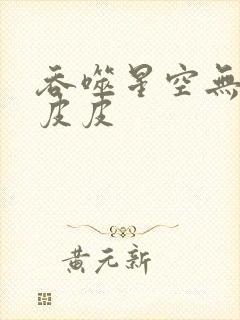 吞噬星空無
皮皮
黃元新